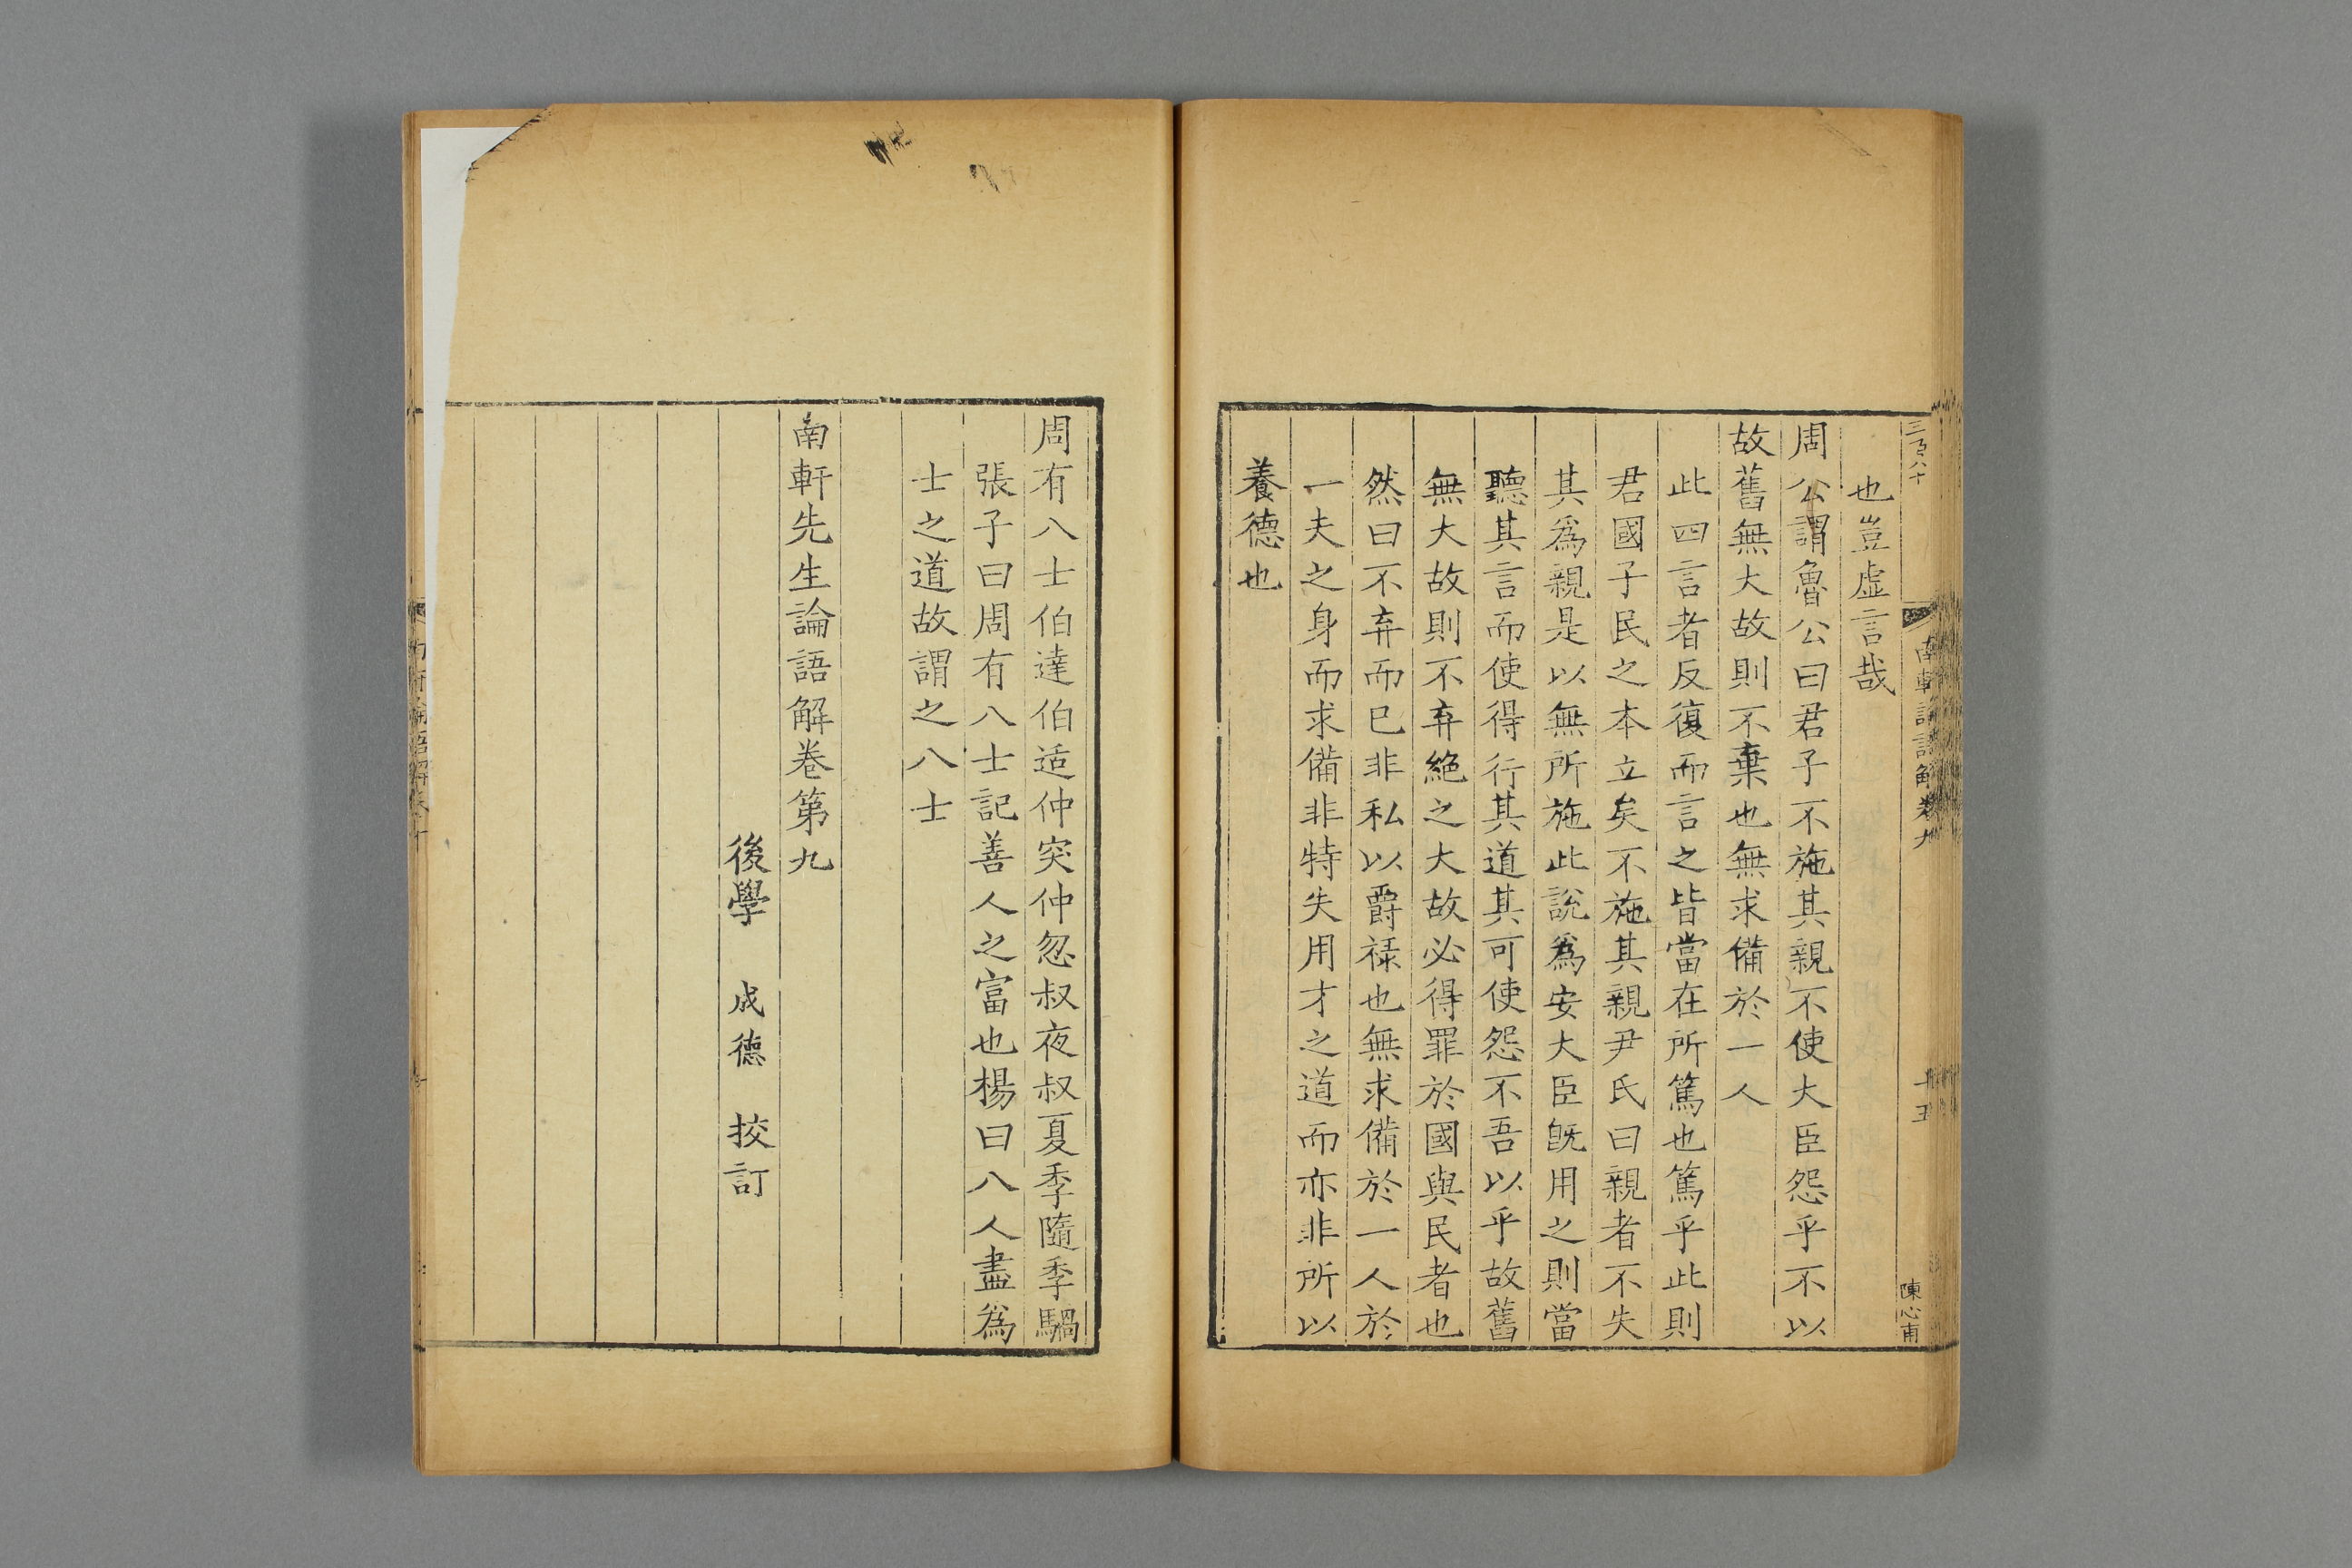 三百八十
南軒論語解卷九
十五
陳心甫
也豈虛言哉
周公謂魯公曰君子不施其親不使大臣怨乎不以
故舊無大故則不棄也無求備於一人
此四言者反復而言之皆當在所篤也篤乎此則
君國子民之本立矣不施其親尹氏曰親者不失
其爲親是以無所施此說爲安大臣旣用之則當
聽其言而使得行其道其可使怨不吾以乎故舊
無大故則不弃絕之大故必得罪於國與民者也
然曰不弃而已非私以爵祿也無求備於一人於
一夫之身而求備非特失用才之道而亦非所以
養德也
周有八士伯達伯适仲突仲忽叔夜叔夏季隨季騧
張子曰周有八士記善人之富也楊曰八人盡爲
士之道故謂之八士
南軒先生論語解卷第九
後學 成德 挍訂